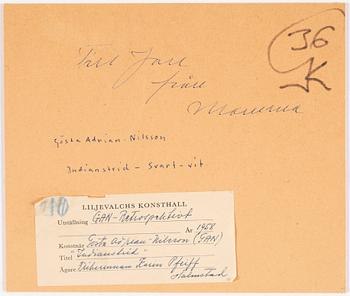 36
K
Till Jarl
från
Mamma
Gösta Adrian-Nilsson
Indianstrid - Svart-vit
LILJEVALCHS KONSTHALL
Utställning GAN-Retrospektivt
År 1958
Konstnär Gösta Adrian-Nilsson (GAN)
Titel "Indianstrid"
Ägare Karin Pfeiff
Halmstad